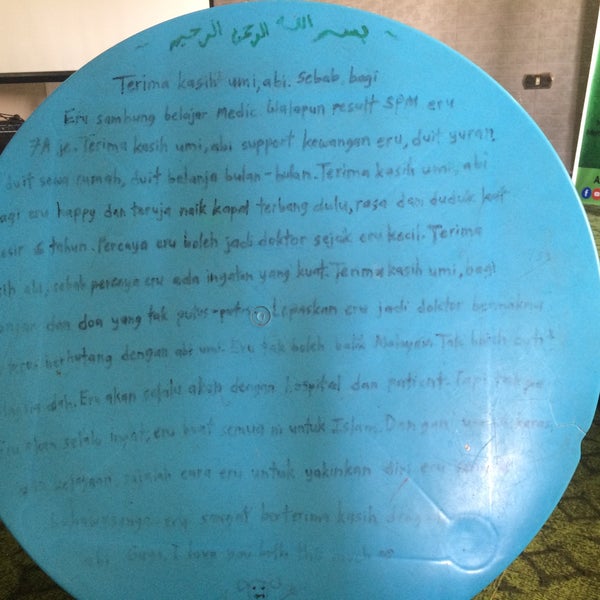 ~ بسم الله الرحمن الرحيم ~
Terima kasih umi, abi. Sebab, bagi
Eru sambung belajar Medic walapun result SPM eru
7A je. Terima kasih umi, abi support kewangan eru, duit yuran
duit sewa rumah, duit belanja bulan-bulan. Terima kasih umi, abi
agi eru happy dan teruja naik kapal terbang dulu, rasa dan duduk kat
esir 6 tahun. Percaya eru boleh jadi doktor sejak eru kecil. Terima
sih abi, sebab percaya eru ada ingatan yang kuat. Terima kasih umi, bagi
dan doa yang tak putus-putus. Lepaskan eru jadi doktor bermakna
berhutang dengan abi umi. Eru tak boleh balik Malaysia. Tak boleh cuti
dah. Eru akan selalu akan dengan hospital dan patient. Tapi tak
Eru akan selalu ingat, eru buat semua ni untuk Islam. Dan
adalah cara eru untuk yakinkan diri eru
bahawasanya eru sangat berterima kasih dengan
abi I love you both this much